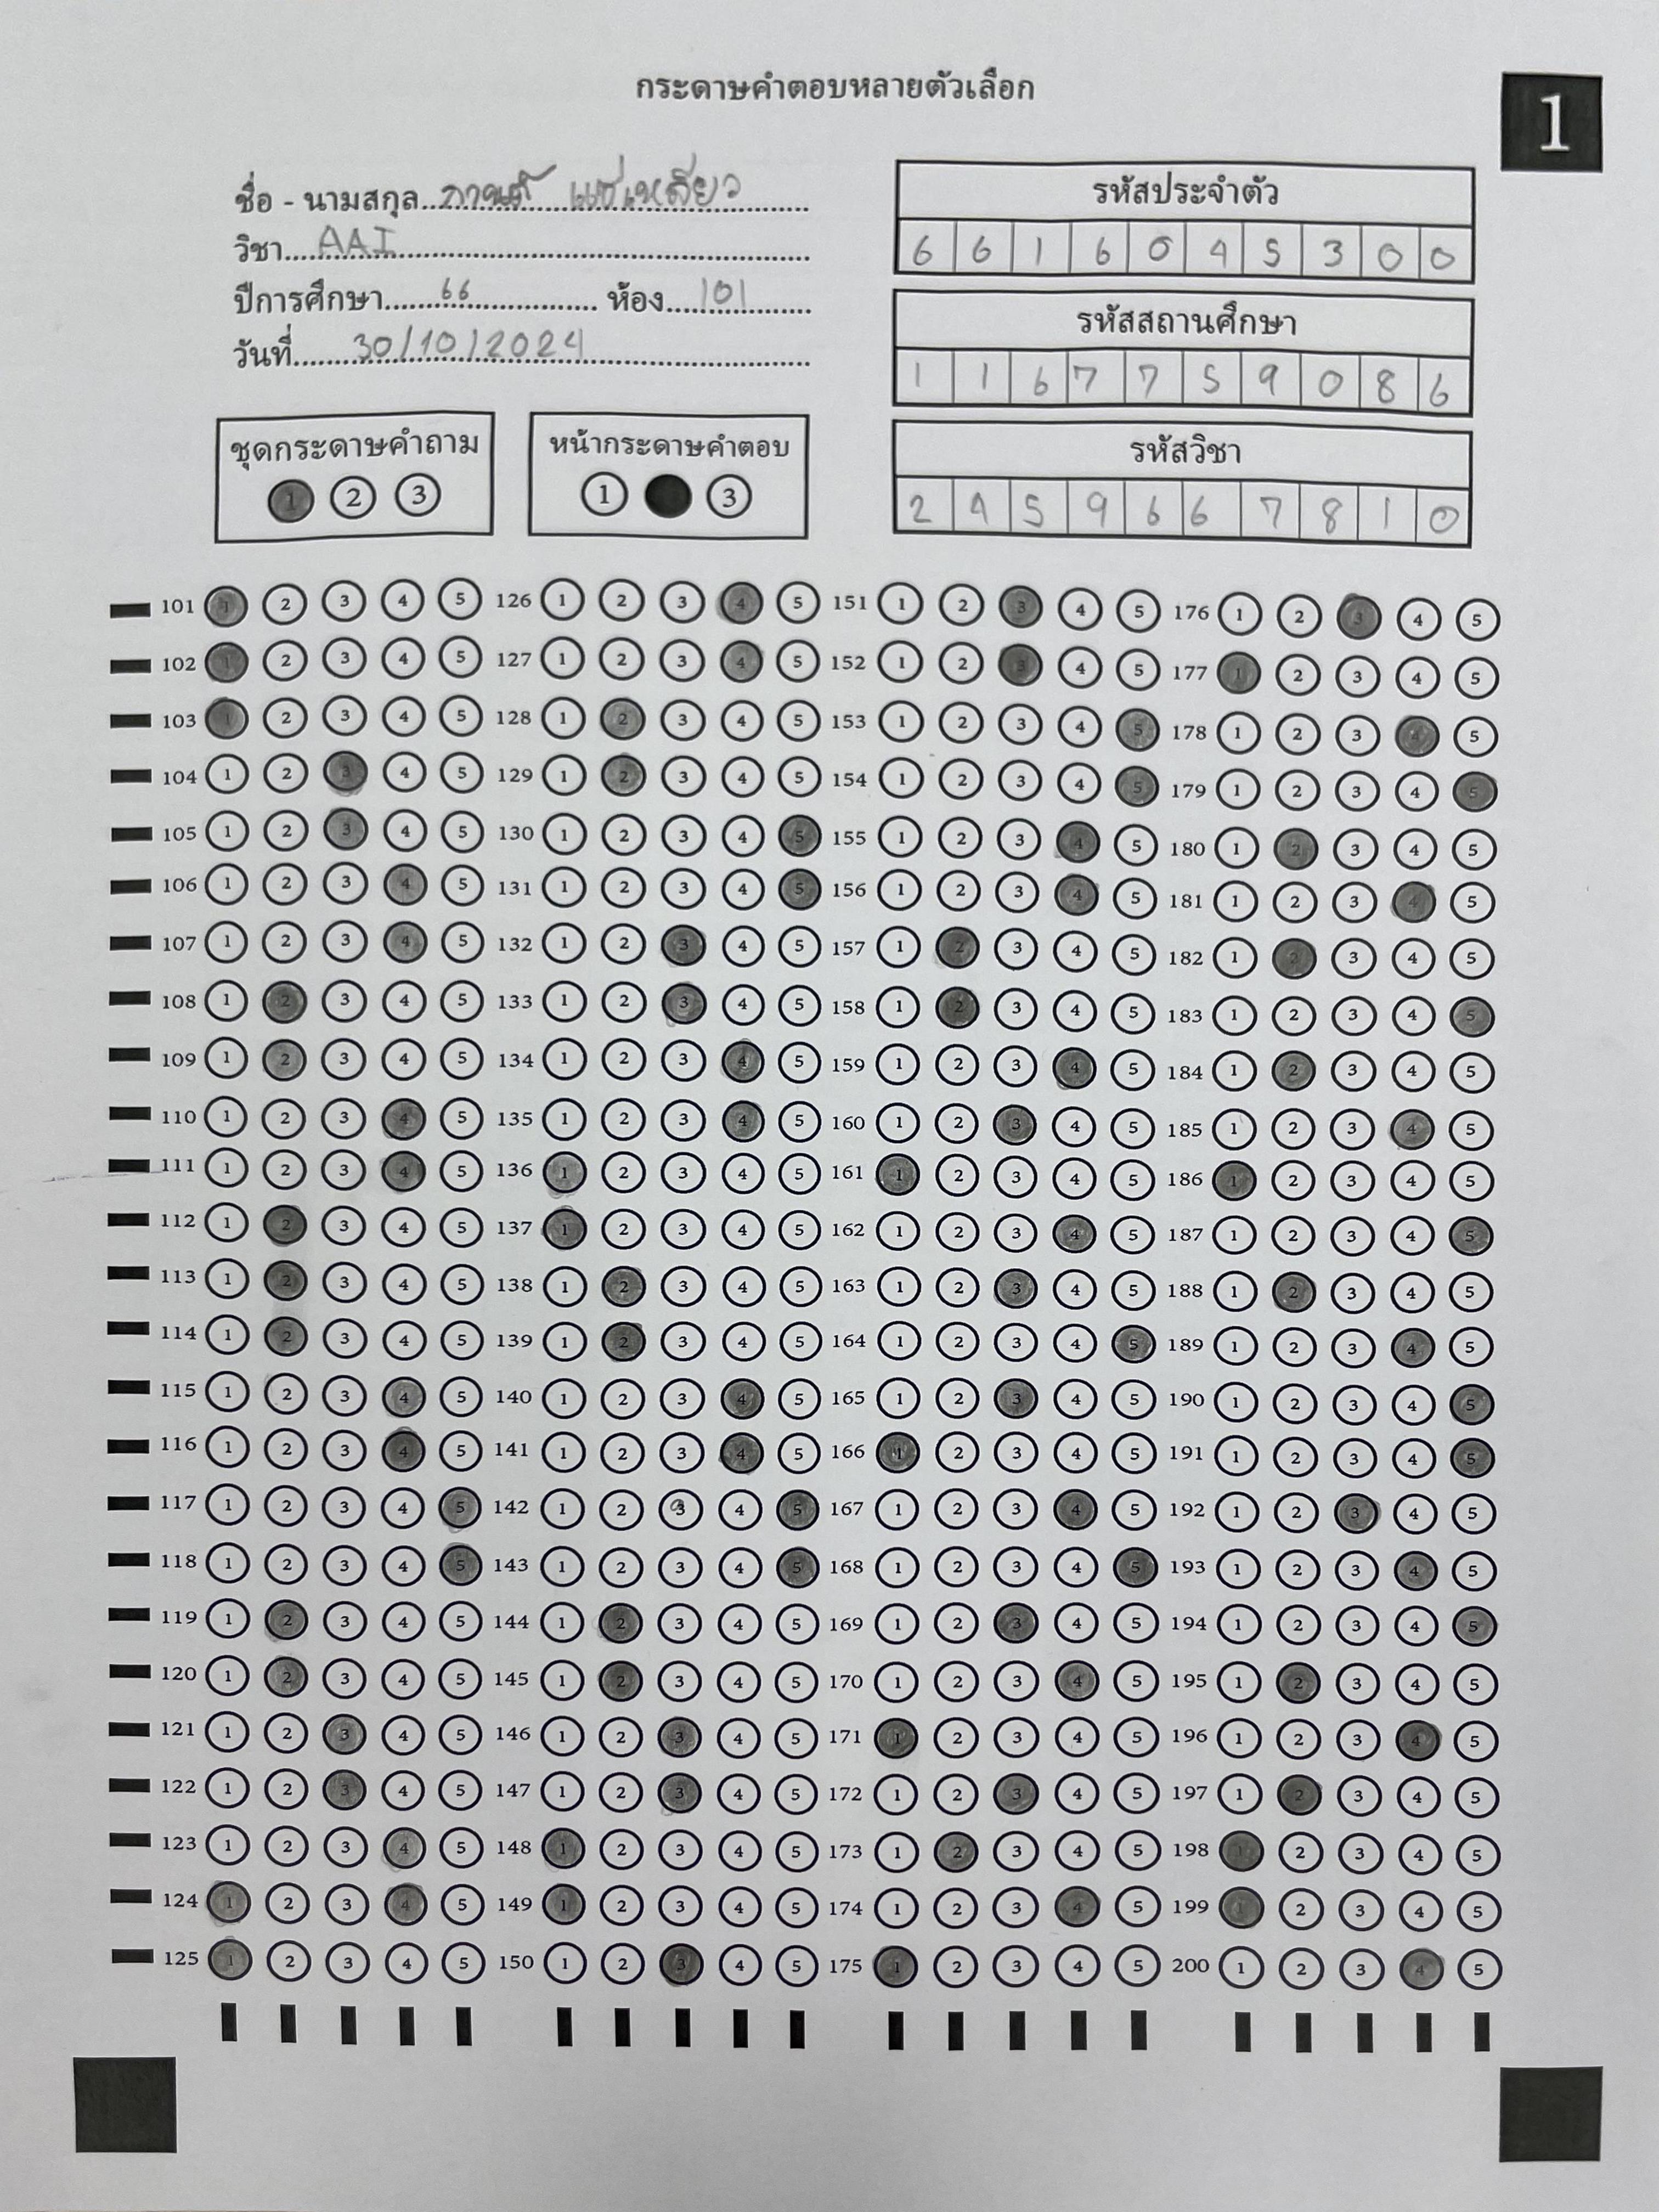 กระดาษคำตอบหลายตัวเลือก
1
ชื่อ - นามสกุล.. แซ่เหลียว
วิชา...AAI
ปีการศึกษา...66... ห้อง...101
วันที่...30/10/2024
รหัสประจำตัว
6 6 1 6 0 4 5 3 0 0
รหัสสถานศึกษา
1 1 6 7 7 5 9 0 8 6
รหัสวิชา
2 4 5 9 6 6 7 8 1 0
ชุดกระดาษคำถาม
1 2 3
หน้ากระดาษคำตอบ
1 3
101 1 2 3 4 5 126 1 2 3 4 5 151 1 2 3 4 5 176 1 2 3 4 5
102 1 2 3 4 5 127 1 2 3 4 5 152 1 2 3 4 5 177 1 2 3 4 5
103 1 2 3 4 5 128 1 2 3 4 5 153 1 2 3 4 5 178 1 2 3 4 5
104 1 2 3 4 5 129 1 2 3 4 5 154 1 2 3 4 5 179 1 2 3 4 5
105 1 2 3 4 5 130 1 2 3 4 5 155 1 2 3 4 5 180 1 2 3 4 5
106 1 2 3 4 5 131 1 2 3 4 5 156 1 2 3 4 5 181 1 2 3 4 5
107 1 2 3 4 5 132 1 2 3 4 5 157 1 2 3 4 5 182 1 2 3 4 5
108 1 2 3 4 5 133 1 2 3 4 5 158 1 2 3 4 5 183 1 2 3 4 5
109 1 2 3 4 5 134 1 2 3 4 5 159 1 2 3 4 5 184 1 2 3 4 5
110 1 2 3 4 5 135 1 2 3 4 5 160 1 2 3 4 5 185 1 2 3 4 5
111 1 2 3 4 5 136 1 2 3 4 5 161 1 2 3 4 5 186 1 2 3 4 5
112 1 2 3 4 5 137 1 2 3 4 5 162 1 2 3 4 5 187 1 2 3 4 5
113 1 2 3 4 5 138 1 2 3 4 5 163 1 2 3 4 5 188 1 2 3 4 5
114 1 2 3 4 5 139 1 2 3 4 5 164 1 2 3 4 5 189 1 2 3 4 5
115 1 2 3 4 5 140 1 2 3 4 5 165 1 2 3 4 5 190 1 2 3 4 5
116 1 2 3 4 5 141 1 2 3 4 5 166 1 2 3 4 5 191 1 2 3 4 5
117 1 2 3 4 5 142 1 2 3 4 5 167 1 2 3 4 5 192 1 2 3 4 5
118 1 2 3 4 5 143 1 2 3 4 5 168 1 2 3 4 5 193 1 2 3 4 5
119 1 2 3 4 5 144 1 2 3 4 5 169 1 2 3 4 5 194 1 2 3 4 5
120 1 2 3 4 5 145 1 2 3 4 5 170 1 2 3 4 5 195 1 2 3 4 5
121 1 2 3 4 5 146 1 2 3 4 5 171 1 2 3 4 5 196 1 2 3 4 5
122 1 2 3 4 5 147 1 2 3 4 5 172 1 2 3 4 5 197 1 2 3 4 5
123 1 2 3 4 5 148 1 2 3 4 5 173 1 2 3 4 5 198 1 2 3 4 5
124 1 2 3 4 5 149 1 2 3 4 5 174 1 2 3 4 5 199 1 2 3 4 5
125 1 2 3 4 5 150 1 2 3 4 5 175 1 2 3 4 5 200 1 2 3 4 5